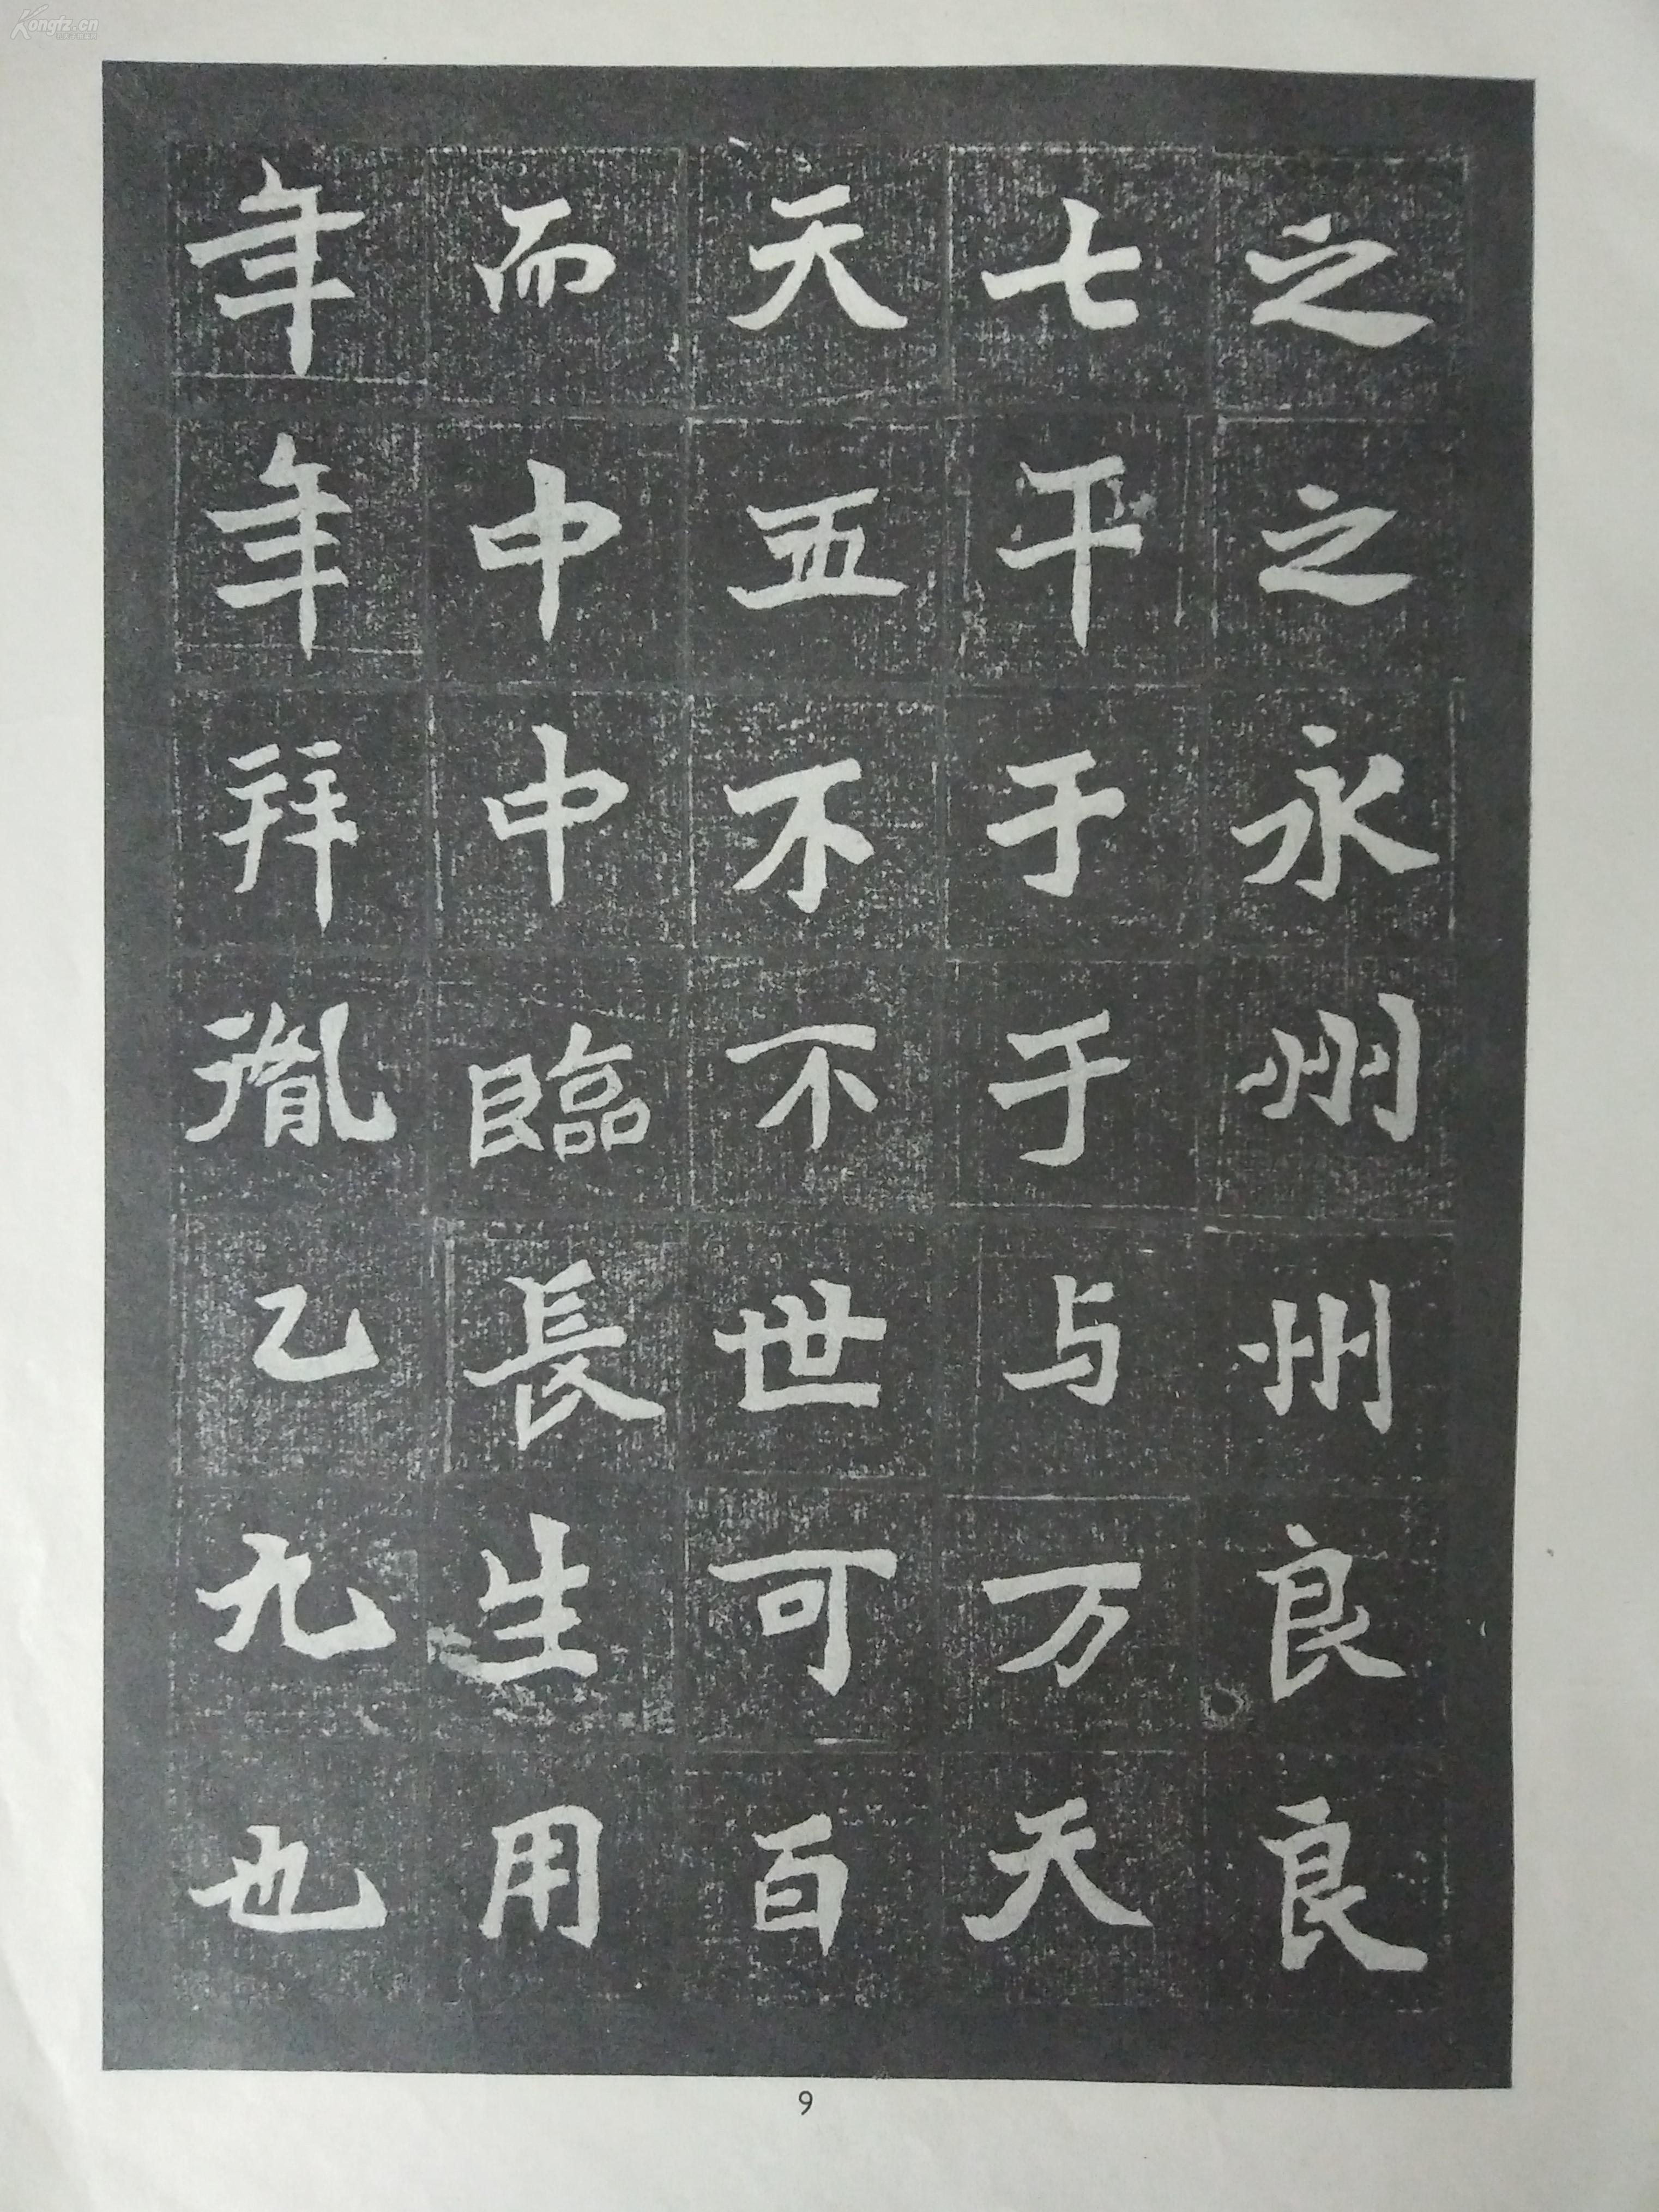 之之永州州良良
七干于于与万天
天五不不世可百
而中中臨長生用
年年拜胤乙九也
9
Kongfz.cn